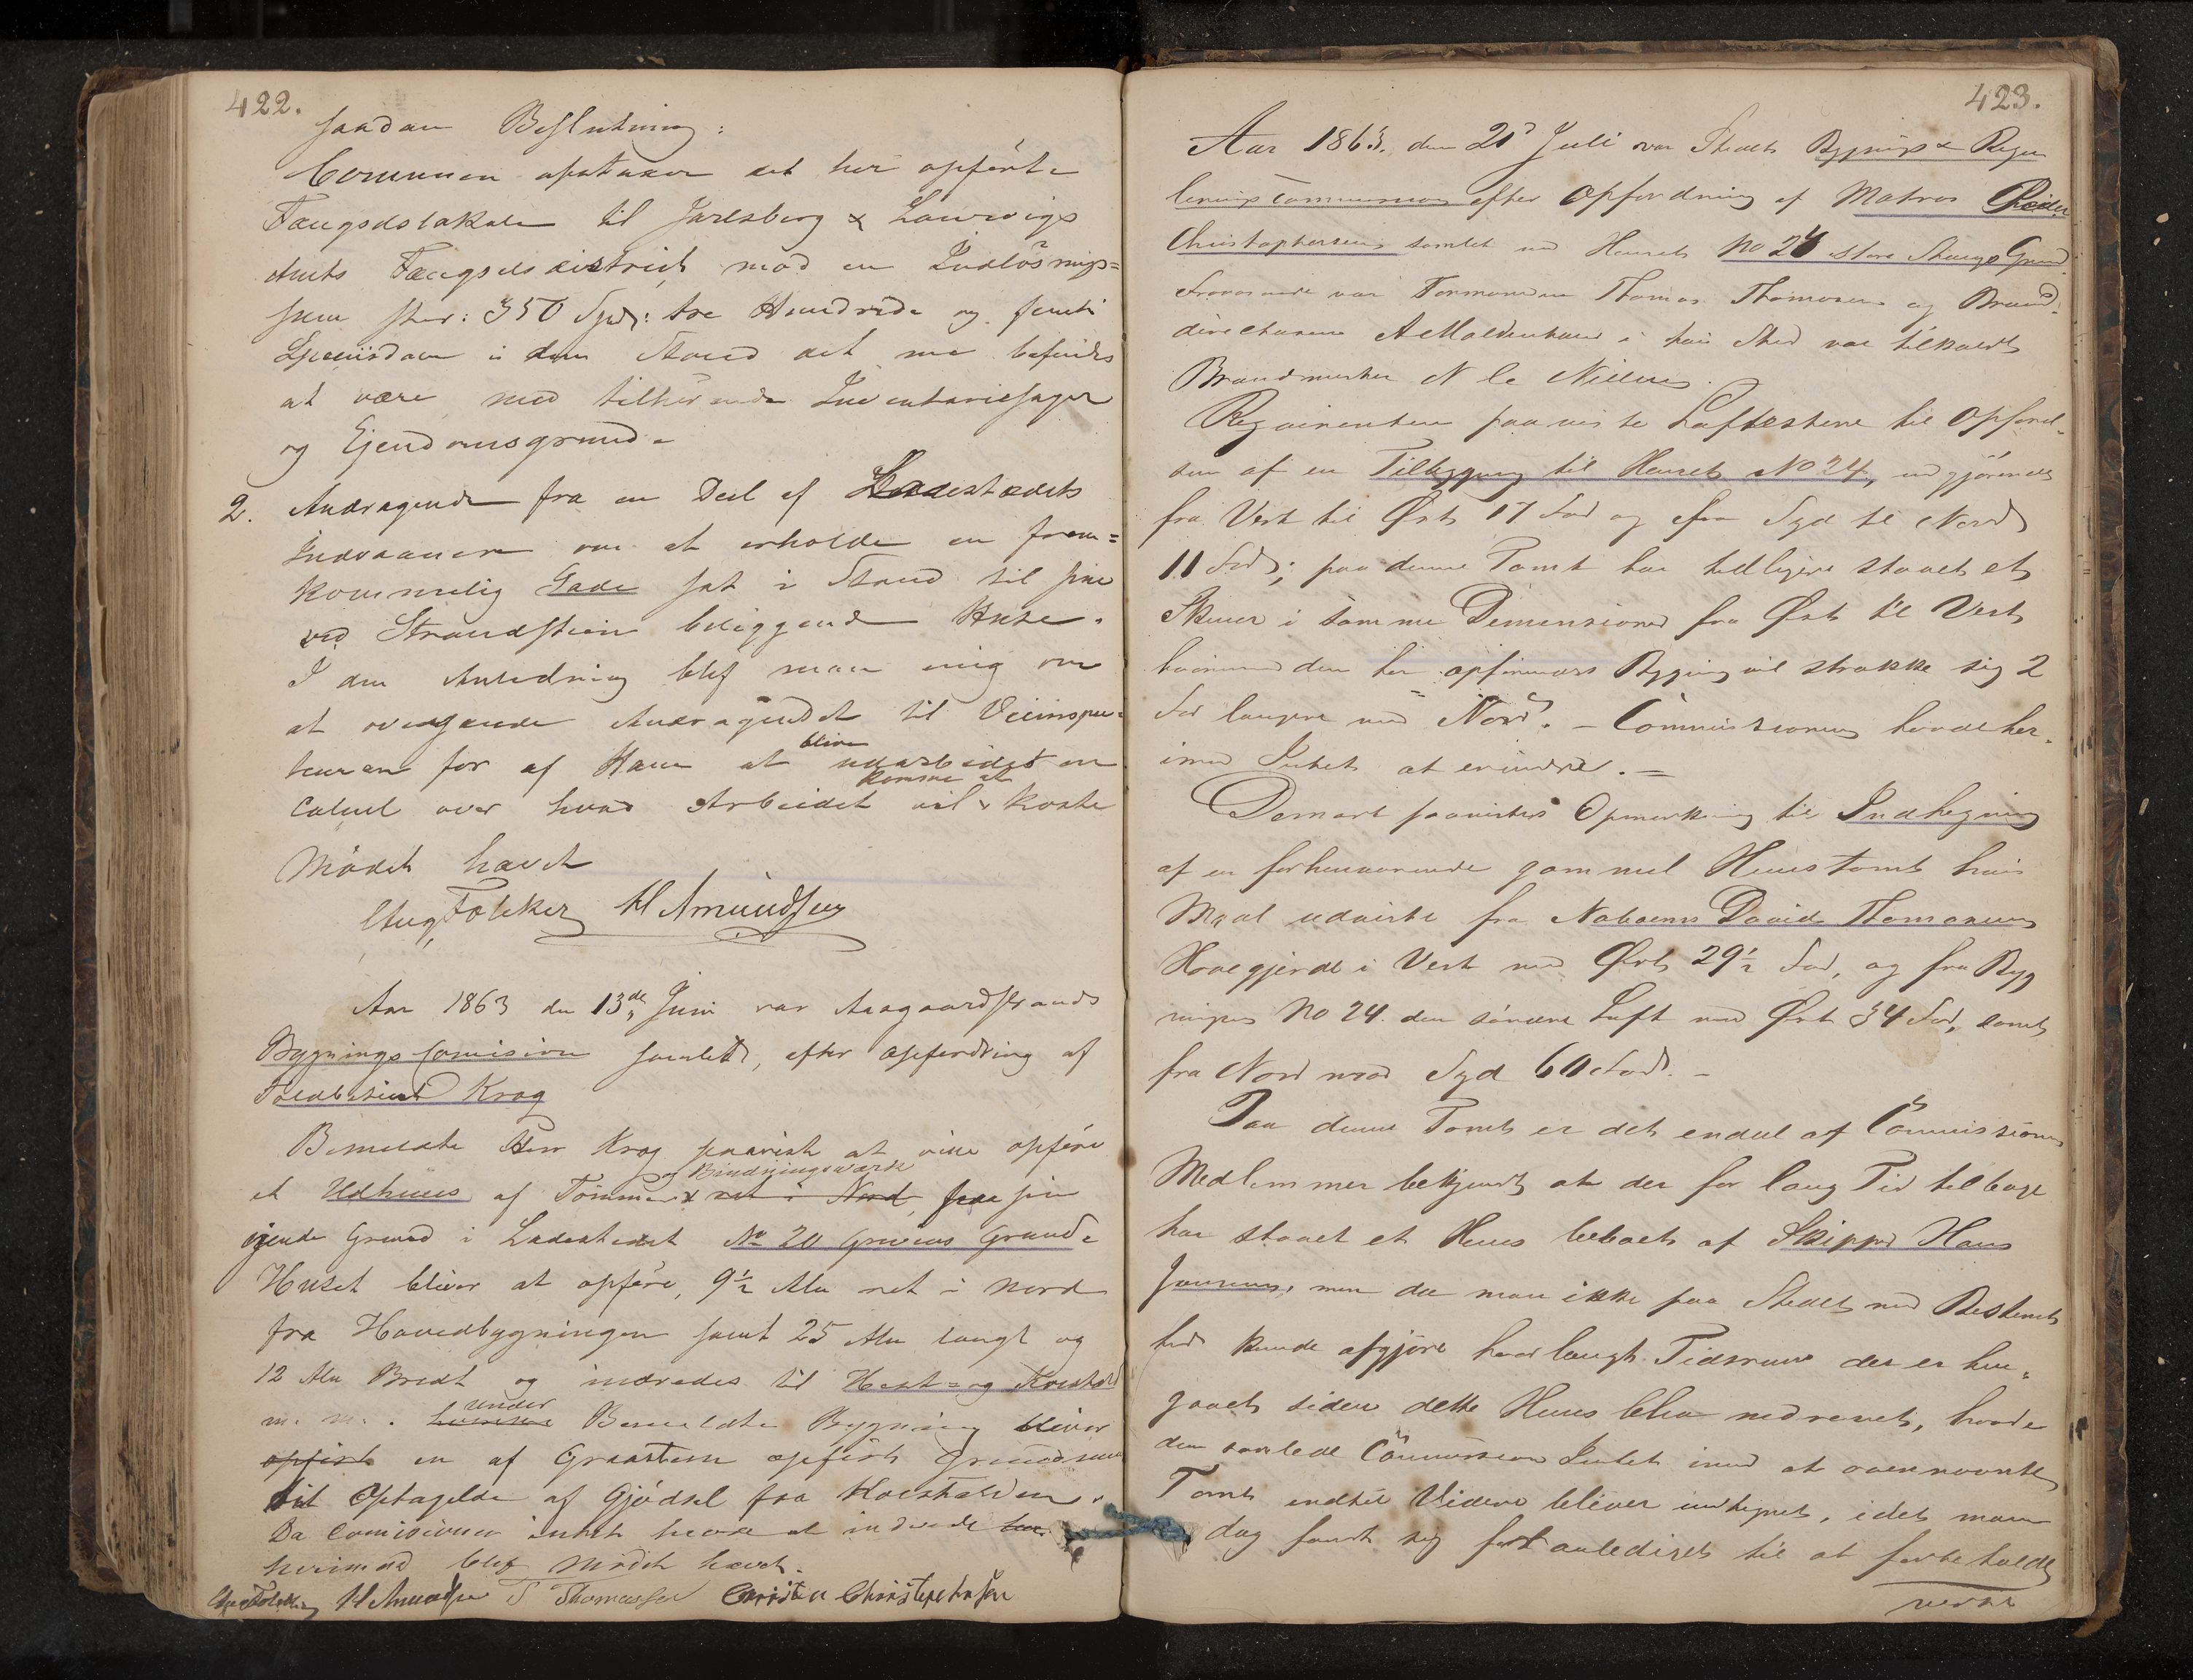 422.
saadan Beslutning:
Communen afstaaer det her opførte
Fængselslokale til Jarlsberg & Laurvigs
Amts Fængselsdistrict, mod en Indløsnings=
sum stor: 350 Spd: tre Hundrede og femti
Speciedaler i den Stand det nu befindes
at være med tilhørende Inventariesager
og Ejendomsgrund.
2. Andragende fra en Deel af Ladestedets
Indvaanere om at erholde en frem=
kommelig Gade sat i Stand til sine
ved Strandstien beliggende Huse.
I den Anledning blef man enig om
at oversende Andragendet til Veiinspec=
teuren for af Ham at blive udarbeidet en
Calcul over hvad Arbeidet vil komme at koste
Mødet hævet
Aug, Følcker H Amundsen
Aar 1863 den 13de Juni var Aasgaardstrands
Bygnings Comision samlet, efter opfordring af
Toldbetjent Krog
Bemeldte Herr Krog paaviste at ville opføre
et Udhuus af Tømmer & og Bindningsværk ret i Nord, paa sin
ejende Grund i Ladestedet No 20 Greviens Grund.
Huset bliver at opføre, 9½ Aln ret i Nord
fra Hovedbygningen samt 25 Aln langt og
12 Aln Bredt og indredes til Hest= og Kostald
m. m. under Bemeldte Bygning bliver
opført en af Graasteen opført Grundmur
til Optagelse af Gjødsel fra Kostalden.
Da Comisionen intet havde at indvende
herimod blef Mødet hævet.
Aug Følcker H Amundsen T Thomassen Christen Christophersen
423.
Aar 1863. den 21 Juli var Stedets Bygnings & Regu
leringscommission efter Opfordring af Matros Peder
Christophersen samlet ved Huset No 24 store Stangs Grund.
Fraværende var Formanden Thomas Thomasen og Brand-
directeuren A Moldenhauer i hvis Sted var tilkaldt
Brandmester N Nielsen.
Reqvirenten paaviste Tufterstene til Opførel-
sen af en Tilbygning til Huset No 24, udgjørende
fra Vest til Øst 17 Fod og fra Syd til Nord
11 Fod; paa denne Tomt har tidligere staaet et
Skuur i samme Dimensioner fra Øst til Vest
hvorimod den her opførendes Bygning vil strække sig 2
Fod længere mod Nord. - Commissionen havde her-
imod Intet at erindre. =
Dernæst paavistes Opmerkning til Indhegning
af en forhenværende gammel Huustomt hvis
Maal udviste fra Naboens David Thomasens
Havegjerde i Vest mod Øst 29½ Fod, og fra Byg
ningen No 24. den søndre Tuft mod Øst 34 Fod, samt
fra Nord mod Syd 60 Fod. -
Paa denne Tomt er det endeel af Commissionens
Medlemmer bekjendt at der for lang Tid tilbage
har staaet et Huus beboet af Skipper Hans
Jensen, men da man ikke paa Stedet med Bestemt
hed kunde afgjøre hvor langt Tidsrum der er hen-
gaaet siden dette Huus blev nedrevet, havde
den samlede Commission Intet imod at ovennævnte
Tomt indtil Videre bliver indhegnet, idet man
dog fandt sig foranlediget til at forbeholde